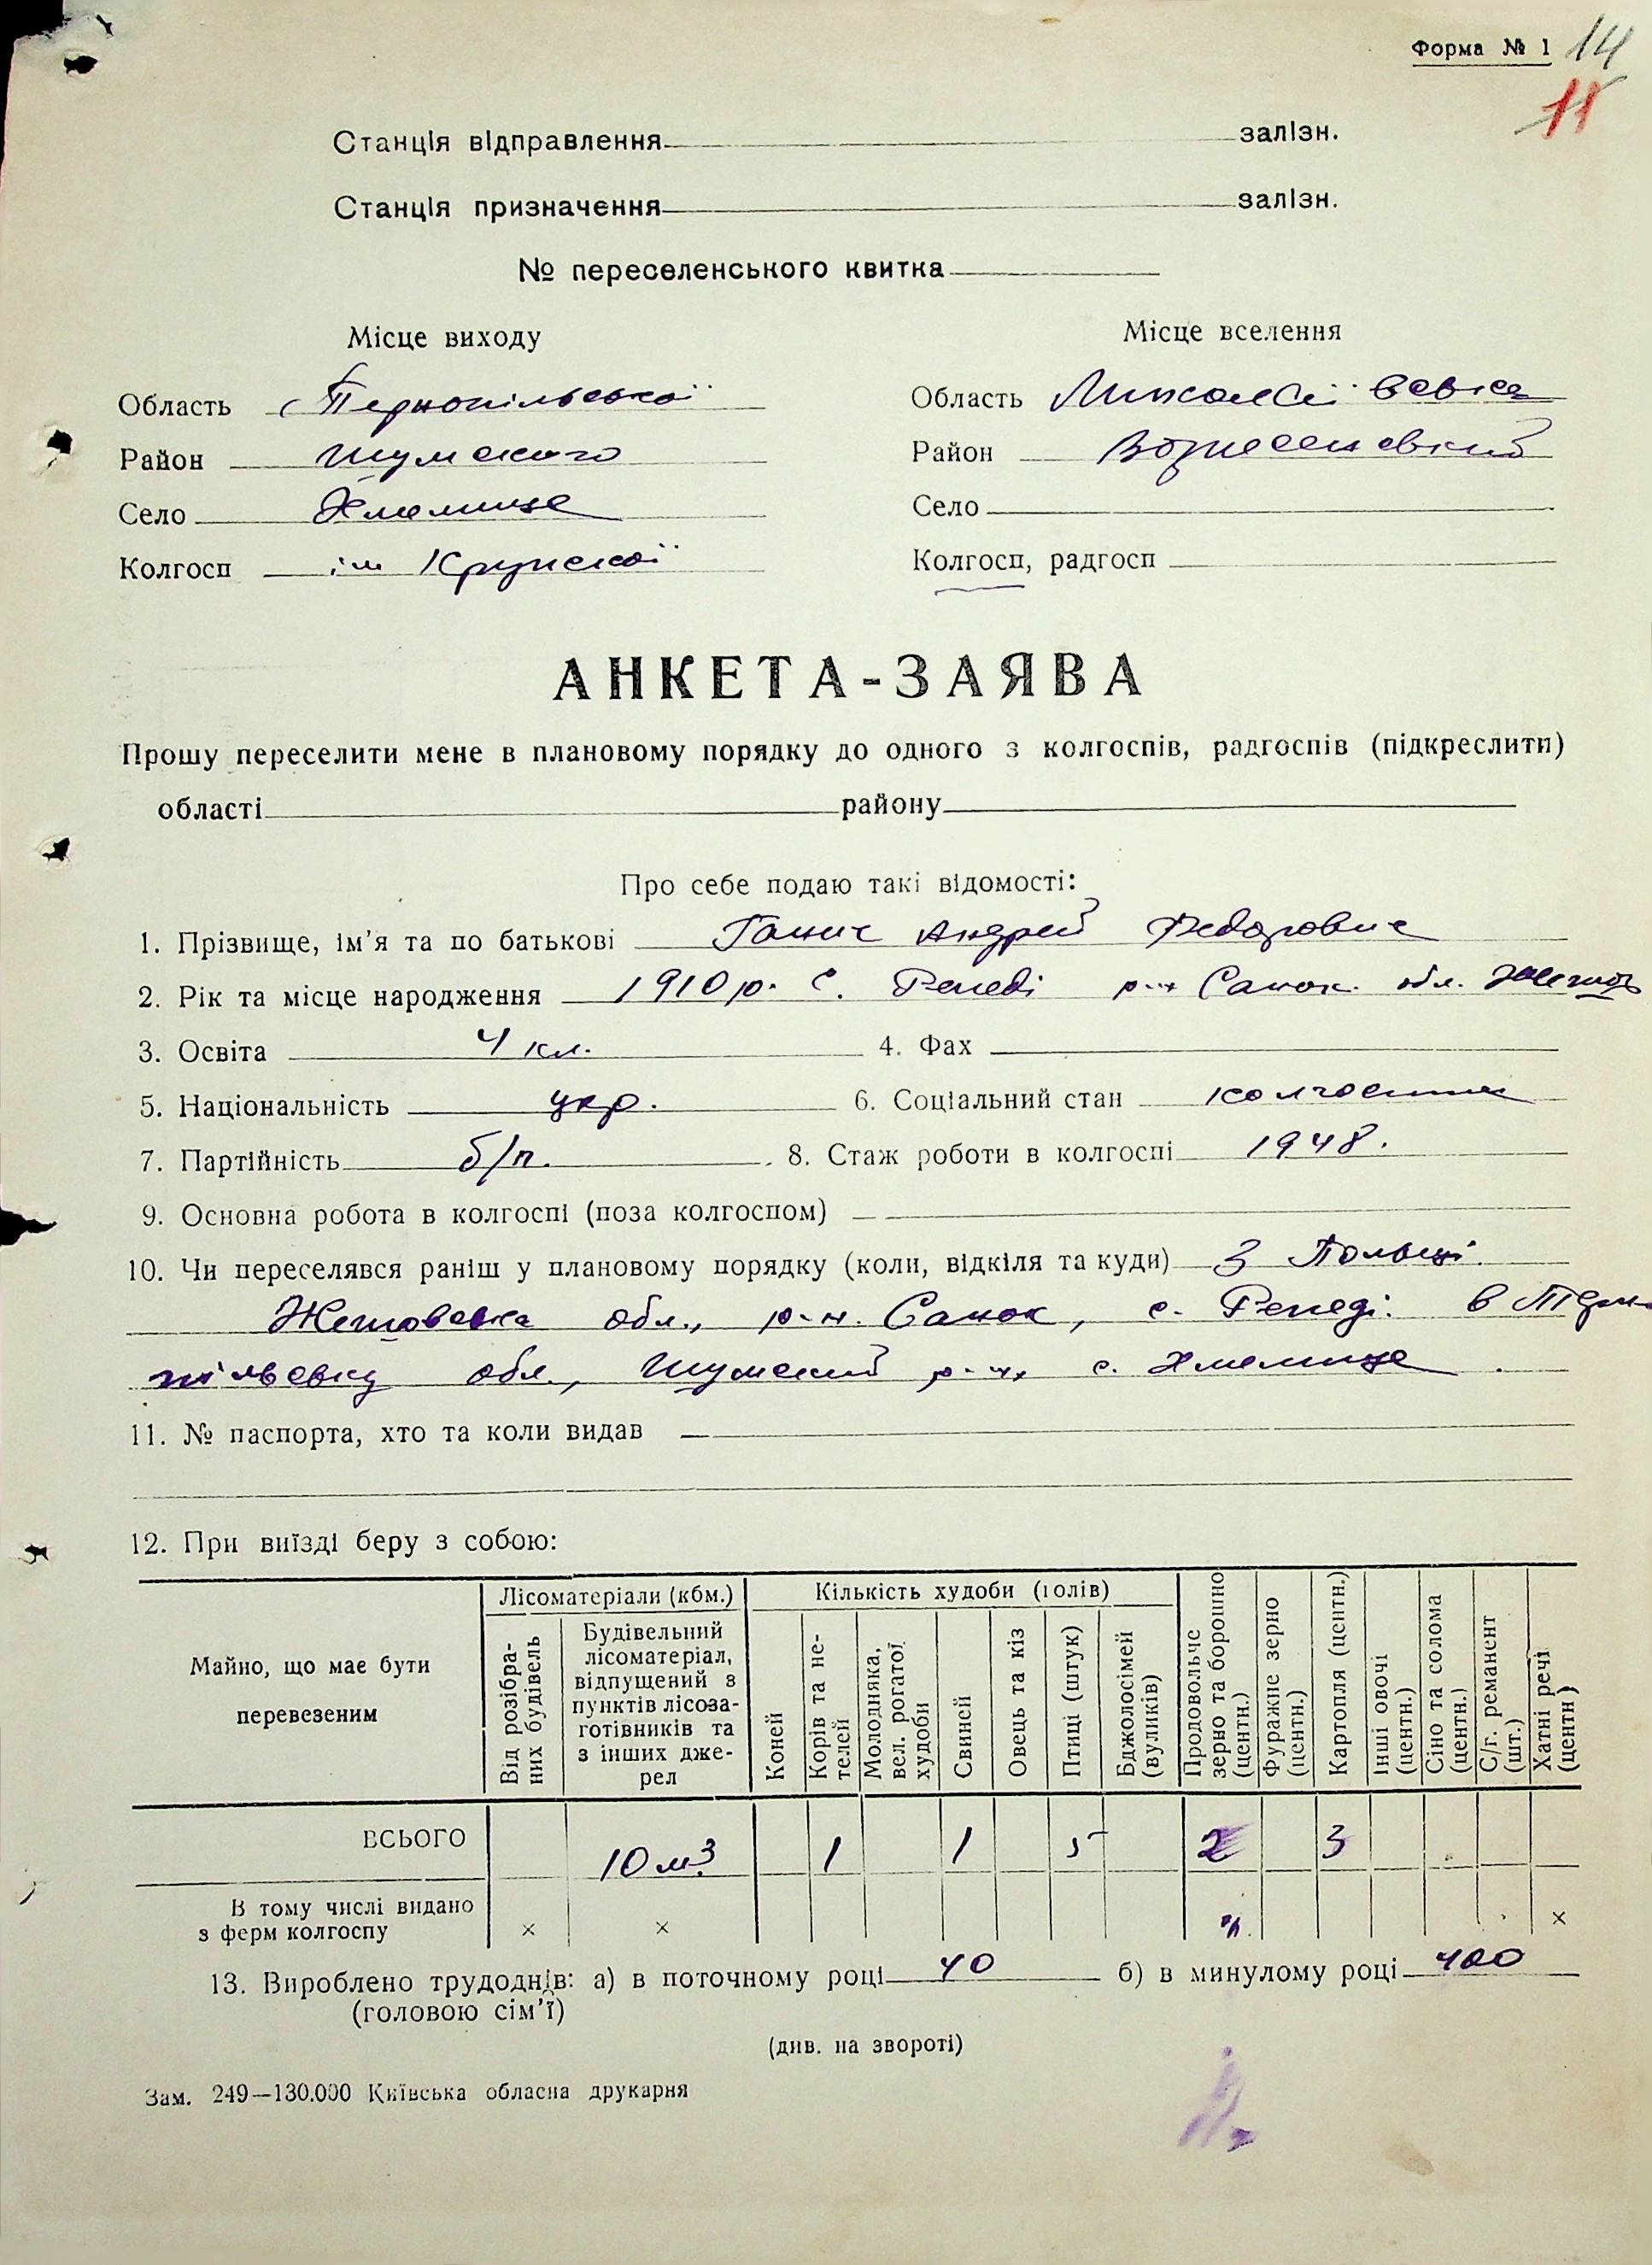 Форма № 1 14
11
Станція відправлення залізн.
Станція призначення залізн.
№ переселенського квитка
Місце виходу
Область Тернопільської
Район Шумського
Село
Колгосп ім Крупської
Місце вселення
Область Миколаївська
Район Вознесенський
Село
Колгосп, радгосп
АНКЕТА-ЗАЯВА
Прошу переселити мене в плановому порядку до одного з колгоспів, радгоспів (підкреслити)
області району
Про себе подаю такі відомості:
1. Прізвище, ім'я та по батькові Андрей Федорович
2. Рік та місце народження 1910 р. с. Репеді р-н Санок. обл.
3. Освіта 4 кл. 4. Фах
5. Національність укр. 6. Соціальний стан колгоспник
7. Партійність б/п. 8. Стаж роботи в колгоспі 1948.
9. Основна робота в колгоспі (поза колгоспом) —
10. Чи переселявся раніш у плановому порядку (коли, відкіля та куди) З Польщі.
Жешовська обл., р-н. Санок, с. Репеді. в Терно
пільську обл., Шумский р-н, с.
11. № паспорта, хто та коли видав —
12. При виїзді беру з собою:
Майно, що має бути перевезеним
Лісоматеріали (кбм.)
Від розібраних будівель
Будівельний лісоматеріал, відпущений з пунктів лісозаготівників та з інших джерел
Кількість худоби (голів)
Коней
Корів та нетелей
Молодняка, вел. рогатої худоби
Свиней
Овець та кіз
Птиці (штук)
Бджолосімей (вуликів)
Продовольче зерно та борошно (центн.)
Фуражне зерно (центн.)
Картопля (центн.)
Інші овочі (центн.)
Сіно та солома (центн.)
С/г. реманент (шт.)
Хатні речі (центн)
ВСЬОГО 10 м3 1 1 5 2 3
В тому числі видано
з ферм колгоспу × × ×
13. Вироблено трудоднів: а) в поточному році 40 б) в минулому році 400
(головою сім'ї)
(див. на звороті)
Зам. 249—130.000 Київська обласна друкарня